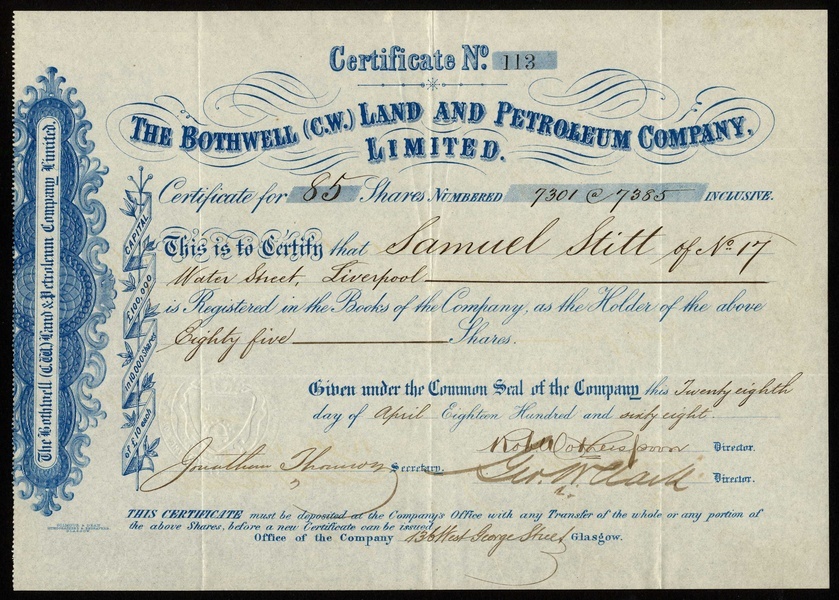 Certificate No. 113
THE BOTHWELL (C.W.) LAND AND PETROLEUM COMPANY,
LIMITED.
Certificate for 85 Shares NUMBERED 7301 @ 7385 INCLUSIVE.
This is to Certify that Samuel Stitt of No. 17
Water Street, Liverpool
is Registered in the Books of the Company, as the Holder of the above
Eighty five Shares.
Given under the Common Seal of the Company this Twenty eighth
day of April Eighteen Hundred and sixty eight.
Director.
Jonathan Thomson Secretary. Geo. W. Clark Director.
THIS CERTIFICATE must be deposited at the Company's Office with any Transfer of the whole or any portion of
the above Shares, before a new Certificate can be issued
Office of the Company 136 West George Street Glasgow.
The Bothwell (C.W.) Land & Petroleum Company Limited.
CAPITAL
£100,000
in 10,000 Shares
of £10 each